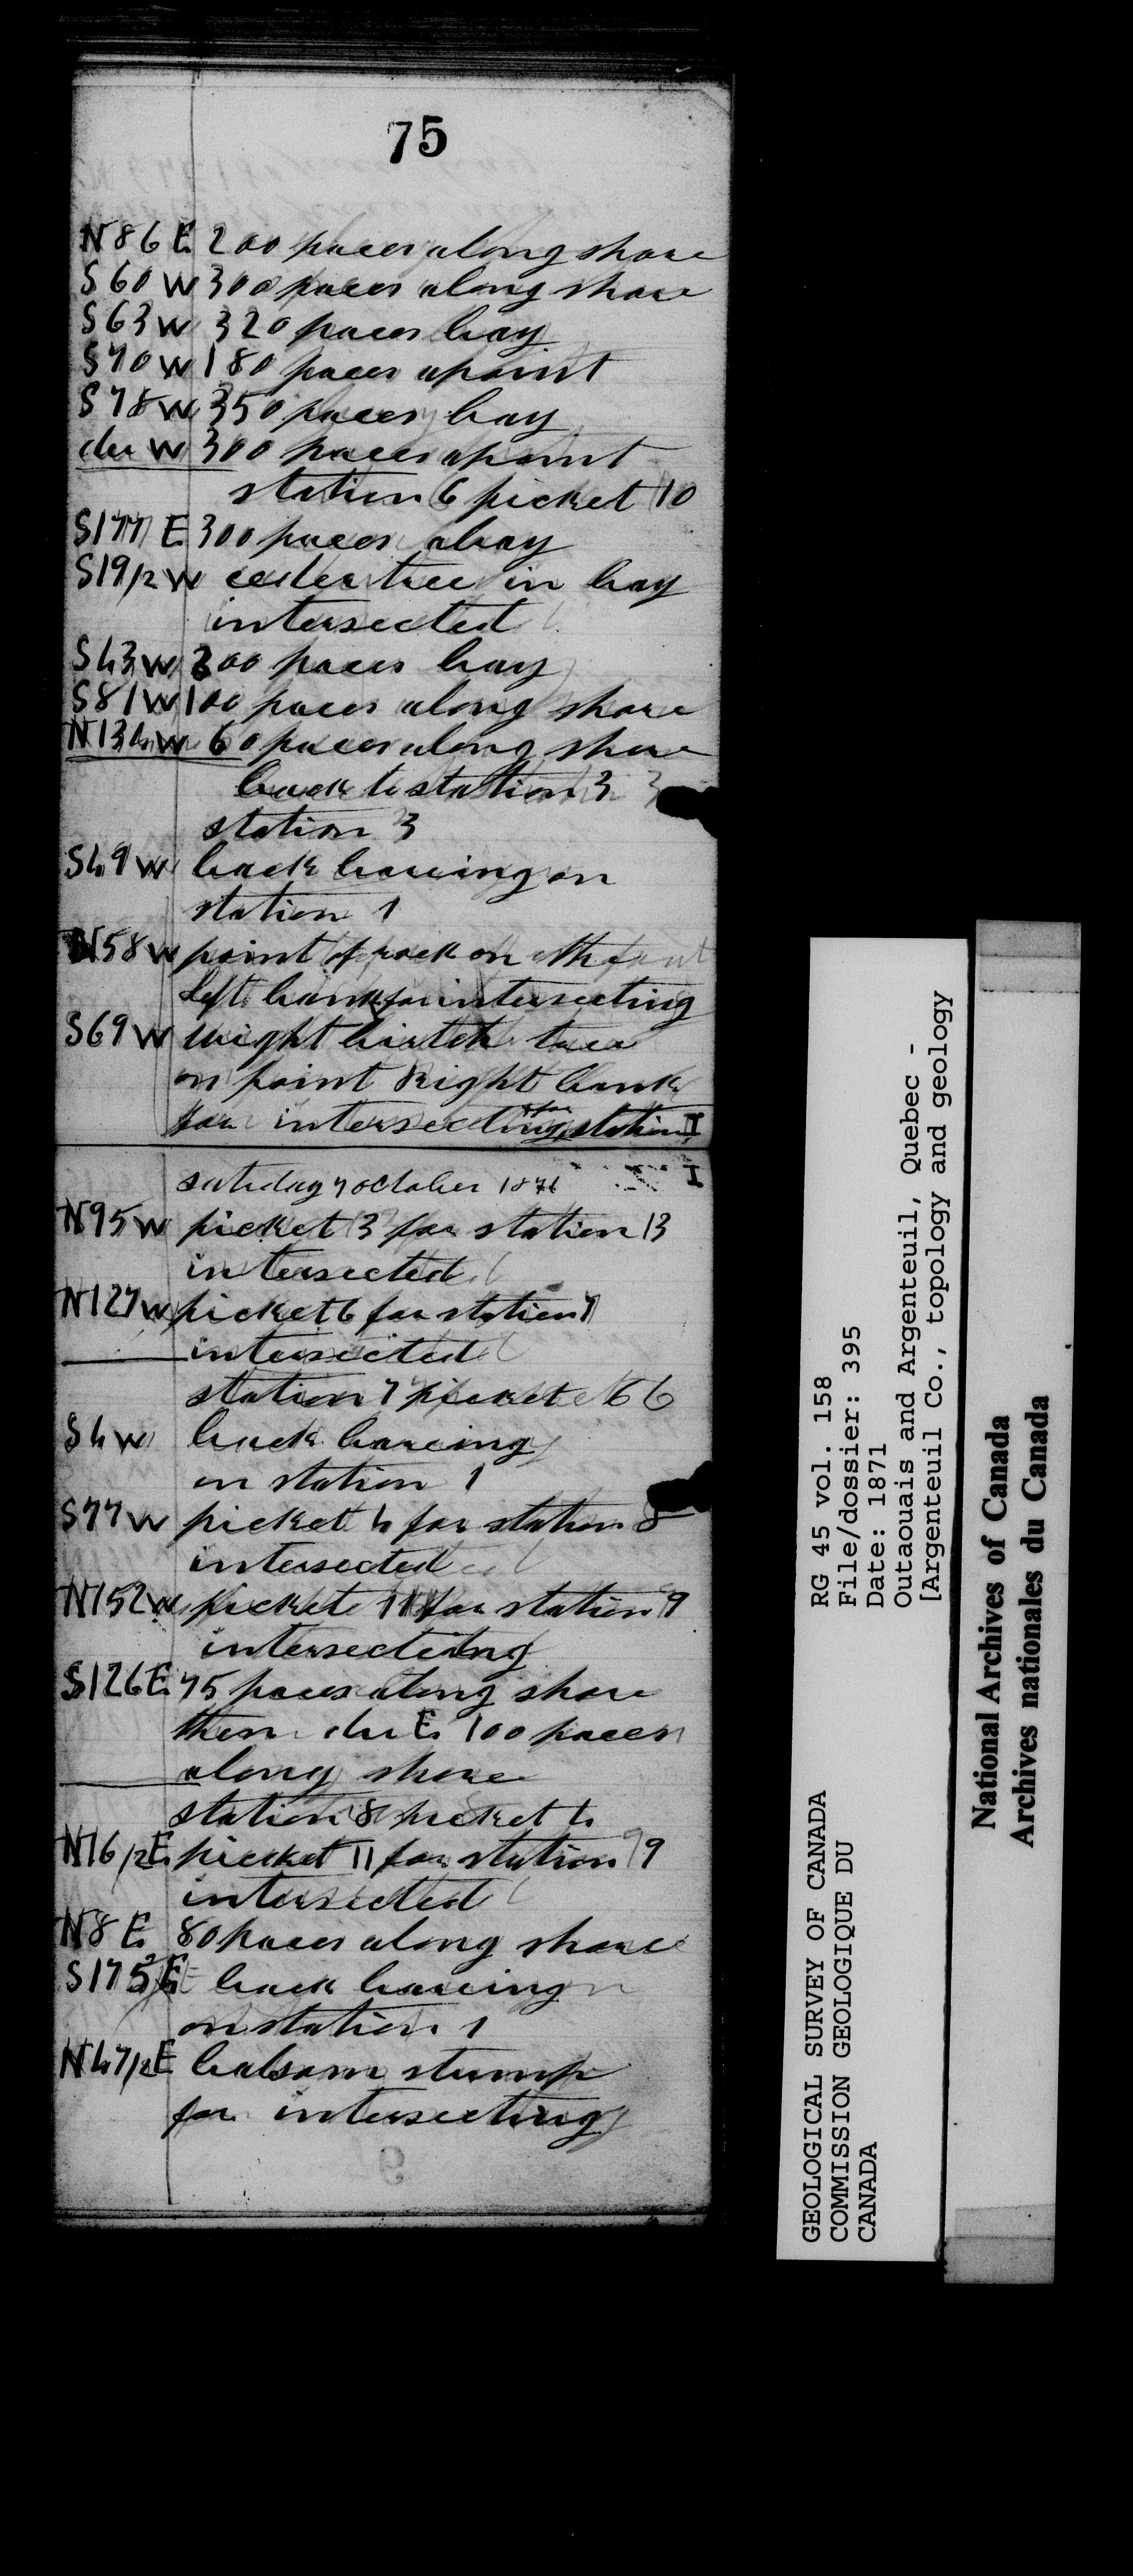 75
N86E 200 paces along shore
S60W 300 paces along shore
S63W 320 paces bay
S70W 180 paces apoint
S78W 350 paces bay
du W 300 paces apoint
station 6 picket 10
S177E 300 paces abay
S19/2W ceder tree in bay
intersected
S43W 300 paces bay
S81W 100 paces along shore
N134W 60 paces along shore
back to station 3
station 3
S49W back bearing on
station 1
N58W point of rock on the
left bank for intersecting
S69W birtch tree
on point Right bank
for intersecting station I
I
saturday 7 october 1871
N95W picket 3 for station 13
intersected
N127W picket 6 for station 7
intersected
station 7 picket 6
S4W back bearing
on station 1
S77W picket 4 for station 8
intersected
N152W picket 11 for station 9
intersecting
S126E 75 paces along shore
then du E 100 paces
along shore
station 8 picket 4
N16/2E picket 11 for station 9
intersected
N8E 80 paces along shore
S175E back bearing
on station 1
N47/2E balsam stump
for intersecting
GEOLOGICAL SURVEY OF CANADA
COMMISSION GEOLOGIQUE DU
CANADA
RG 45 vol. 158
File/dossier: 395
Date: 1871
Outaouais and Argenteuil, Quebec -
[Argenteuil Co., topology and geology
National Archives of Canada
Archives nationales du Canada